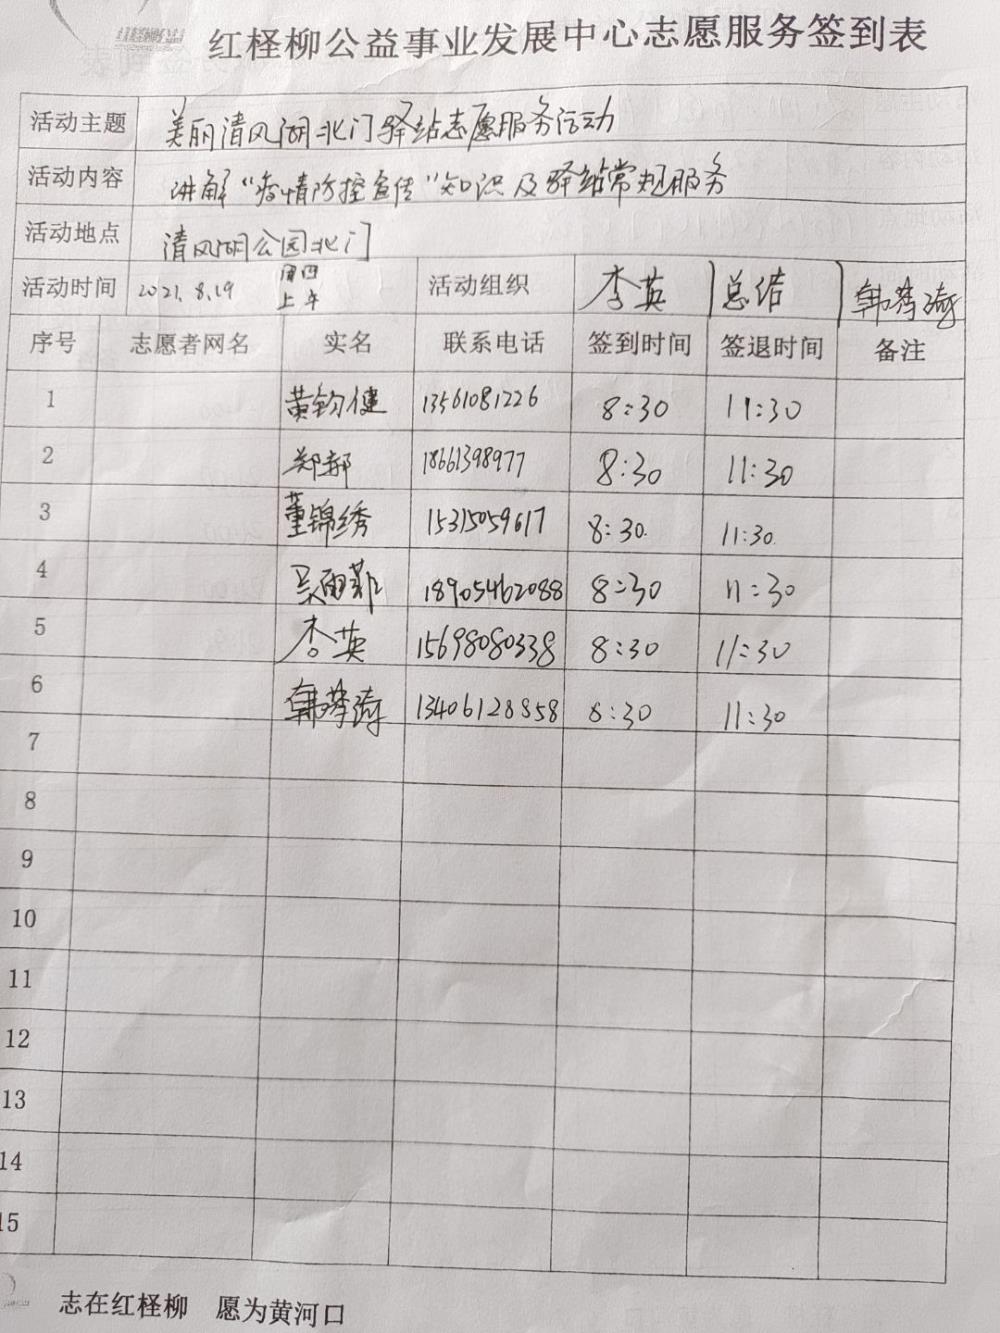 红柽柳公益
红柽柳公益事业发展中心志愿服务签到表
活动主题 美丽清风湖北门驿站志愿服务活动
活动内容 讲解“疫情防控宣传”知识及驿站常规服务
活动地点 清风湖公园北门
活动时间 2021.8.19 周四上午 活动组织 李英 总结 韩
序号 志愿者网名 实名 联系电话 签到时间 签退时间 备注
1 黄钧健 13561081226 8:30 11:30
2 郑郝 18661398977 8:30 11:30
3 董锦绣 15315059617 8:30. 11:30.
4 吴丽菲 18905462088 8:30 11:30
5 李英 15698080338 8:30 11:30
6 韩 13406128858 8:30 11:30
7
8
9
10
11
12
13
14
15
志在红柽柳 愿为黄河口